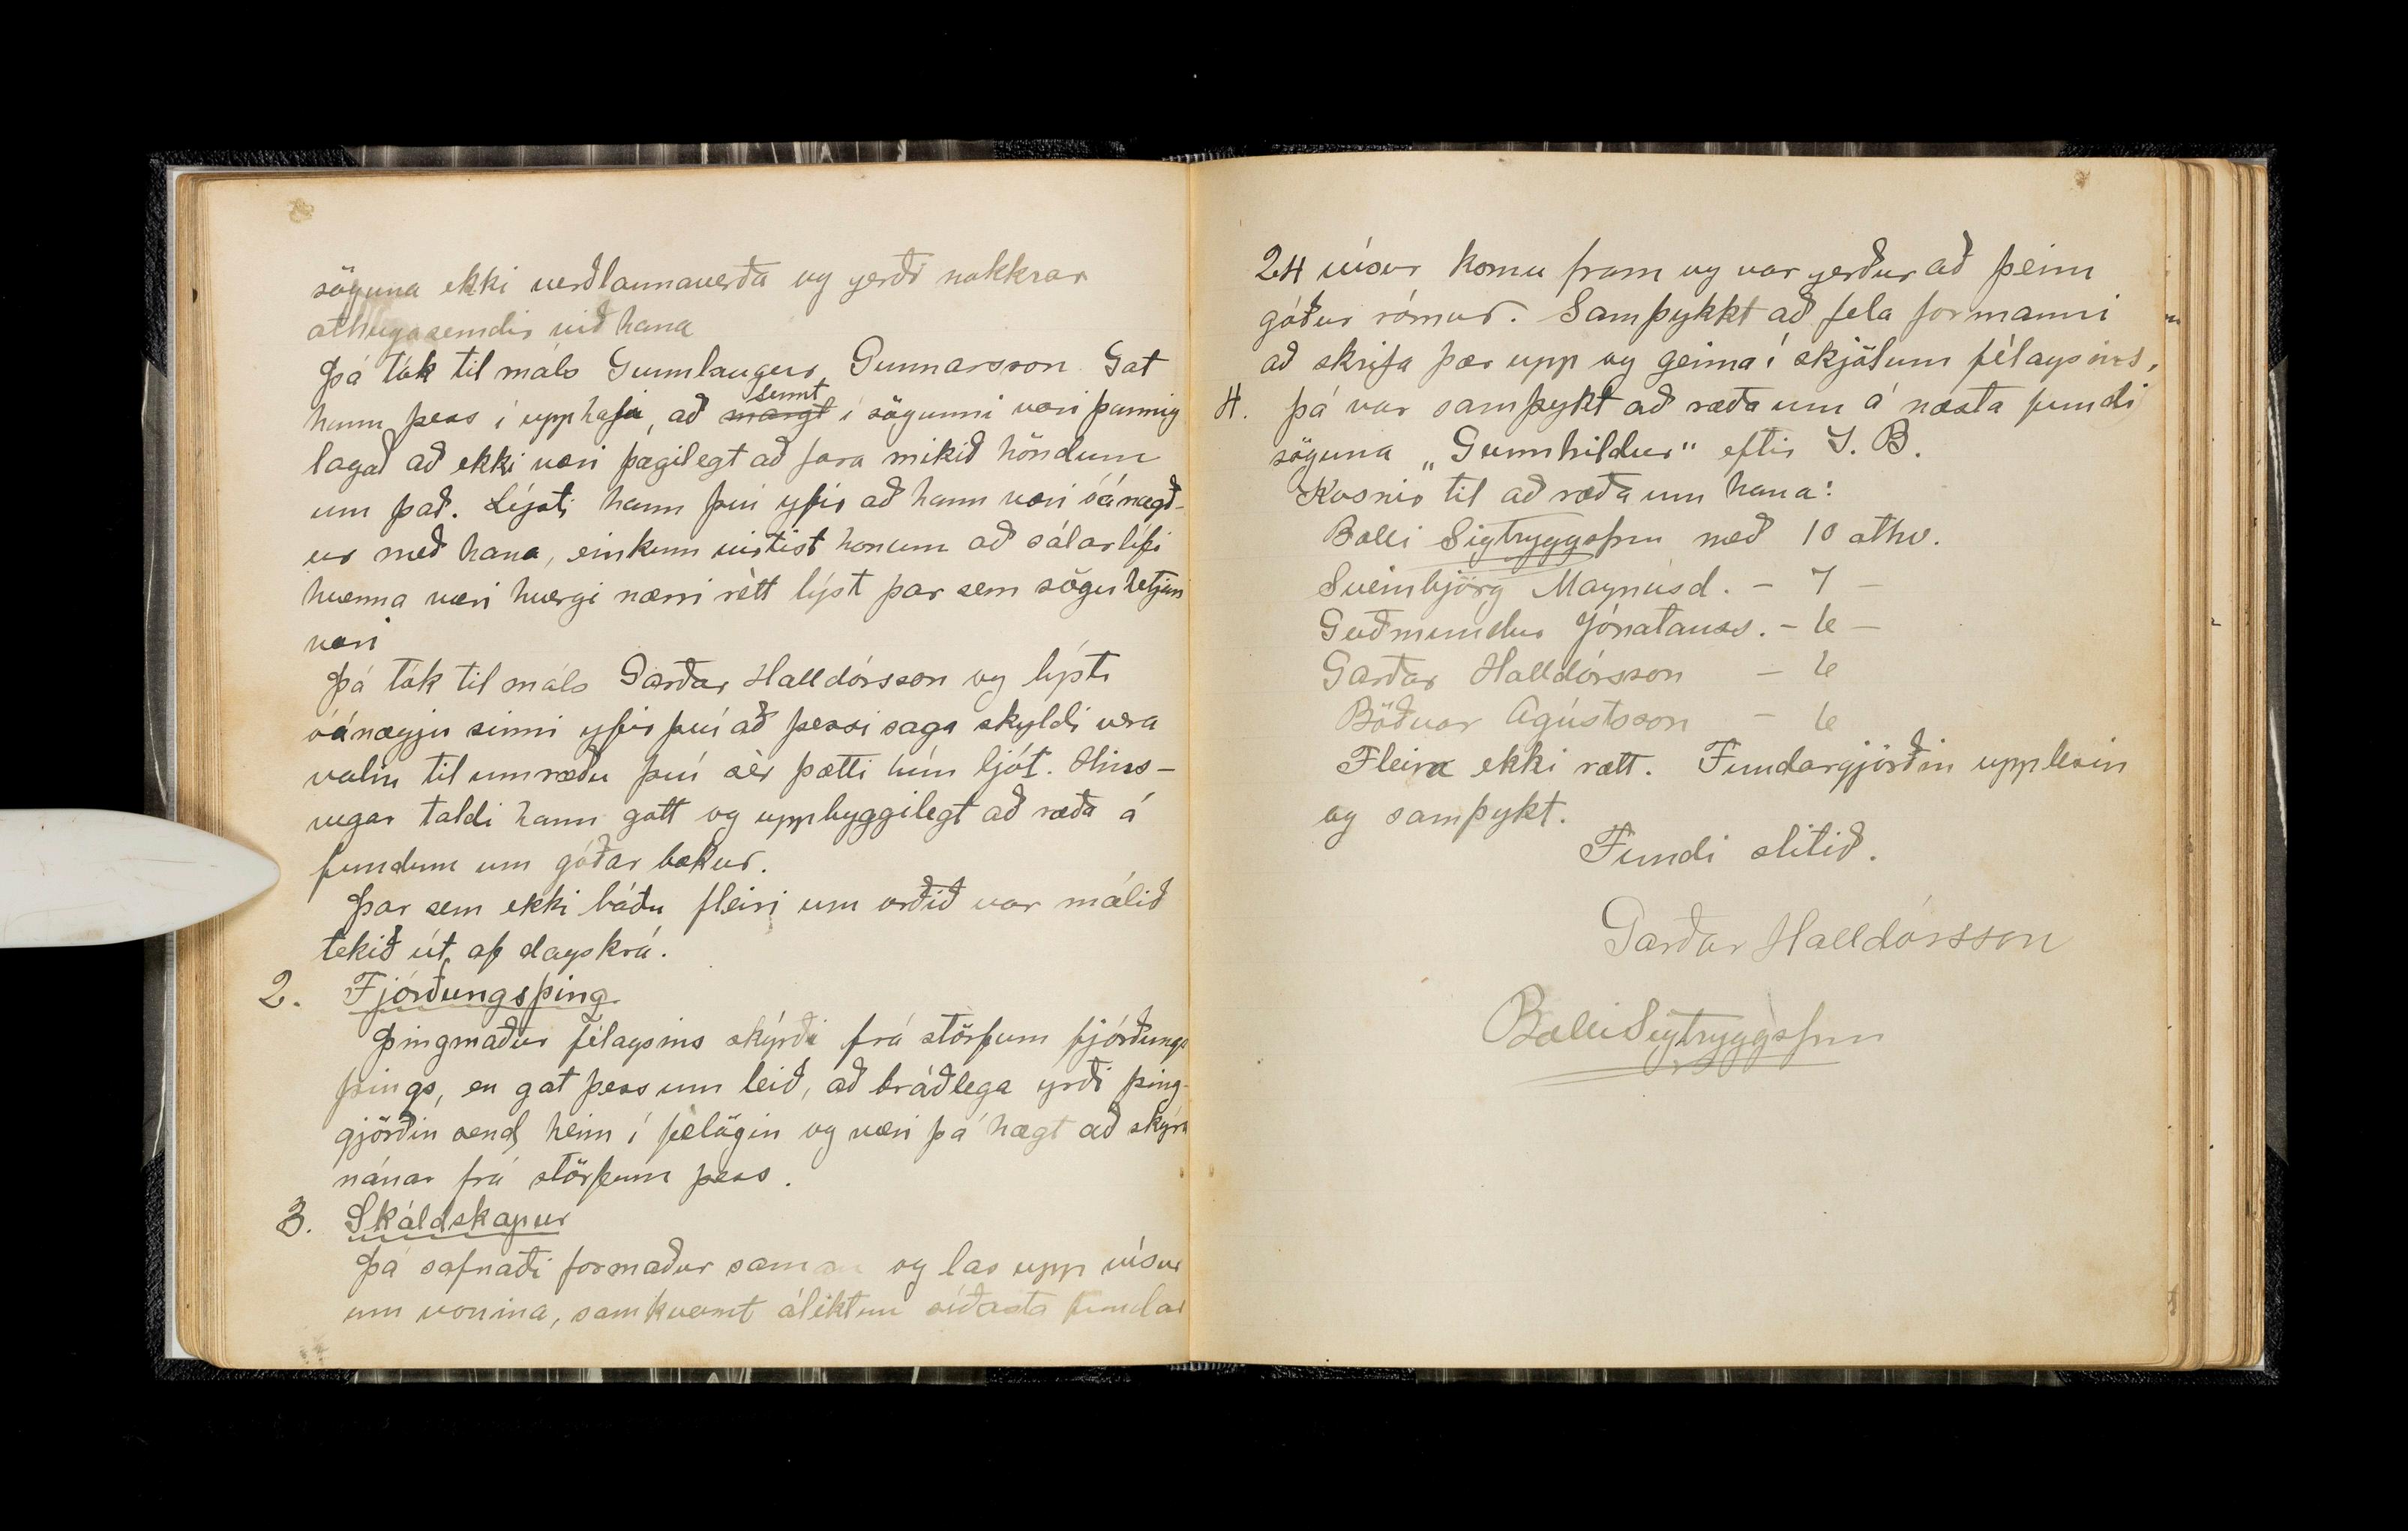 söguna ekki verðlaunaverða og gerði nokkrar
athugasemdir við hana
Þá tók til máls Gunnlaugur Gunnarsson. Gat
hann þess í upphafi, að sumt í sögunni væri þannig
lagað að ekki væri þægilegt að fara mikið höndum
um það. Lýsti hann því yfir að hann væri óánægð-
ur með hana, einkum virtist honum að sálarlífi
kvenna væri hvergi nærri rètt lýst þar sem söguhetjan
væri
Þá tók til máls Garðar Halldórsson og lýsti
óánægju sinni yfir því að þessi saga skyldi vera
valin til umræðu því sèr þætti hún ljót. Hins-
vegar taldi hann gott og uppbyggilegt að ræða á
fundum um góðar bækur.
Þar sem ekki báðu fleiri um orðið var málið
tekið út af dagskrá.
2. Fjórðungsþing
Þingmaður félagsins skýrði frá störfum fjórðungs
þings, en gat þess um leið, að bráðlega yrði þing-
gjörðin send heim í félögin og væri þá hægt að skýra
nánar frá störfum þess.
3. Skáldskapur
Þá safnaði formaður saman og las upp vísur
um vonina, samkvæmt áliktun síðasta fundar
24 vísur komu fram og var gerður að þeim
góður rómur. Samþykkt að fela formanni
að skrifa þær upp og geima í skjölum félagsins.
4. Þá var samþykt að ræða um á næsta fundi
söguna „Gunnhildur" eftir J. B.
Kosnir til að ræða um hana:
Balli Sigtryggsson með 10 athv.
Sveinbjörg Magnúsd. - 7 -
Guðmundur Jónatanss. - 6 -
Garðar Halldórsson - 6
Böðvar Ágústsson - 6
Fleira ekki rætt. Fundargjörðin upplesin
og samþykt.
Fundi slitið.
Garðar Halldórsson
Balli Sigtryggsson